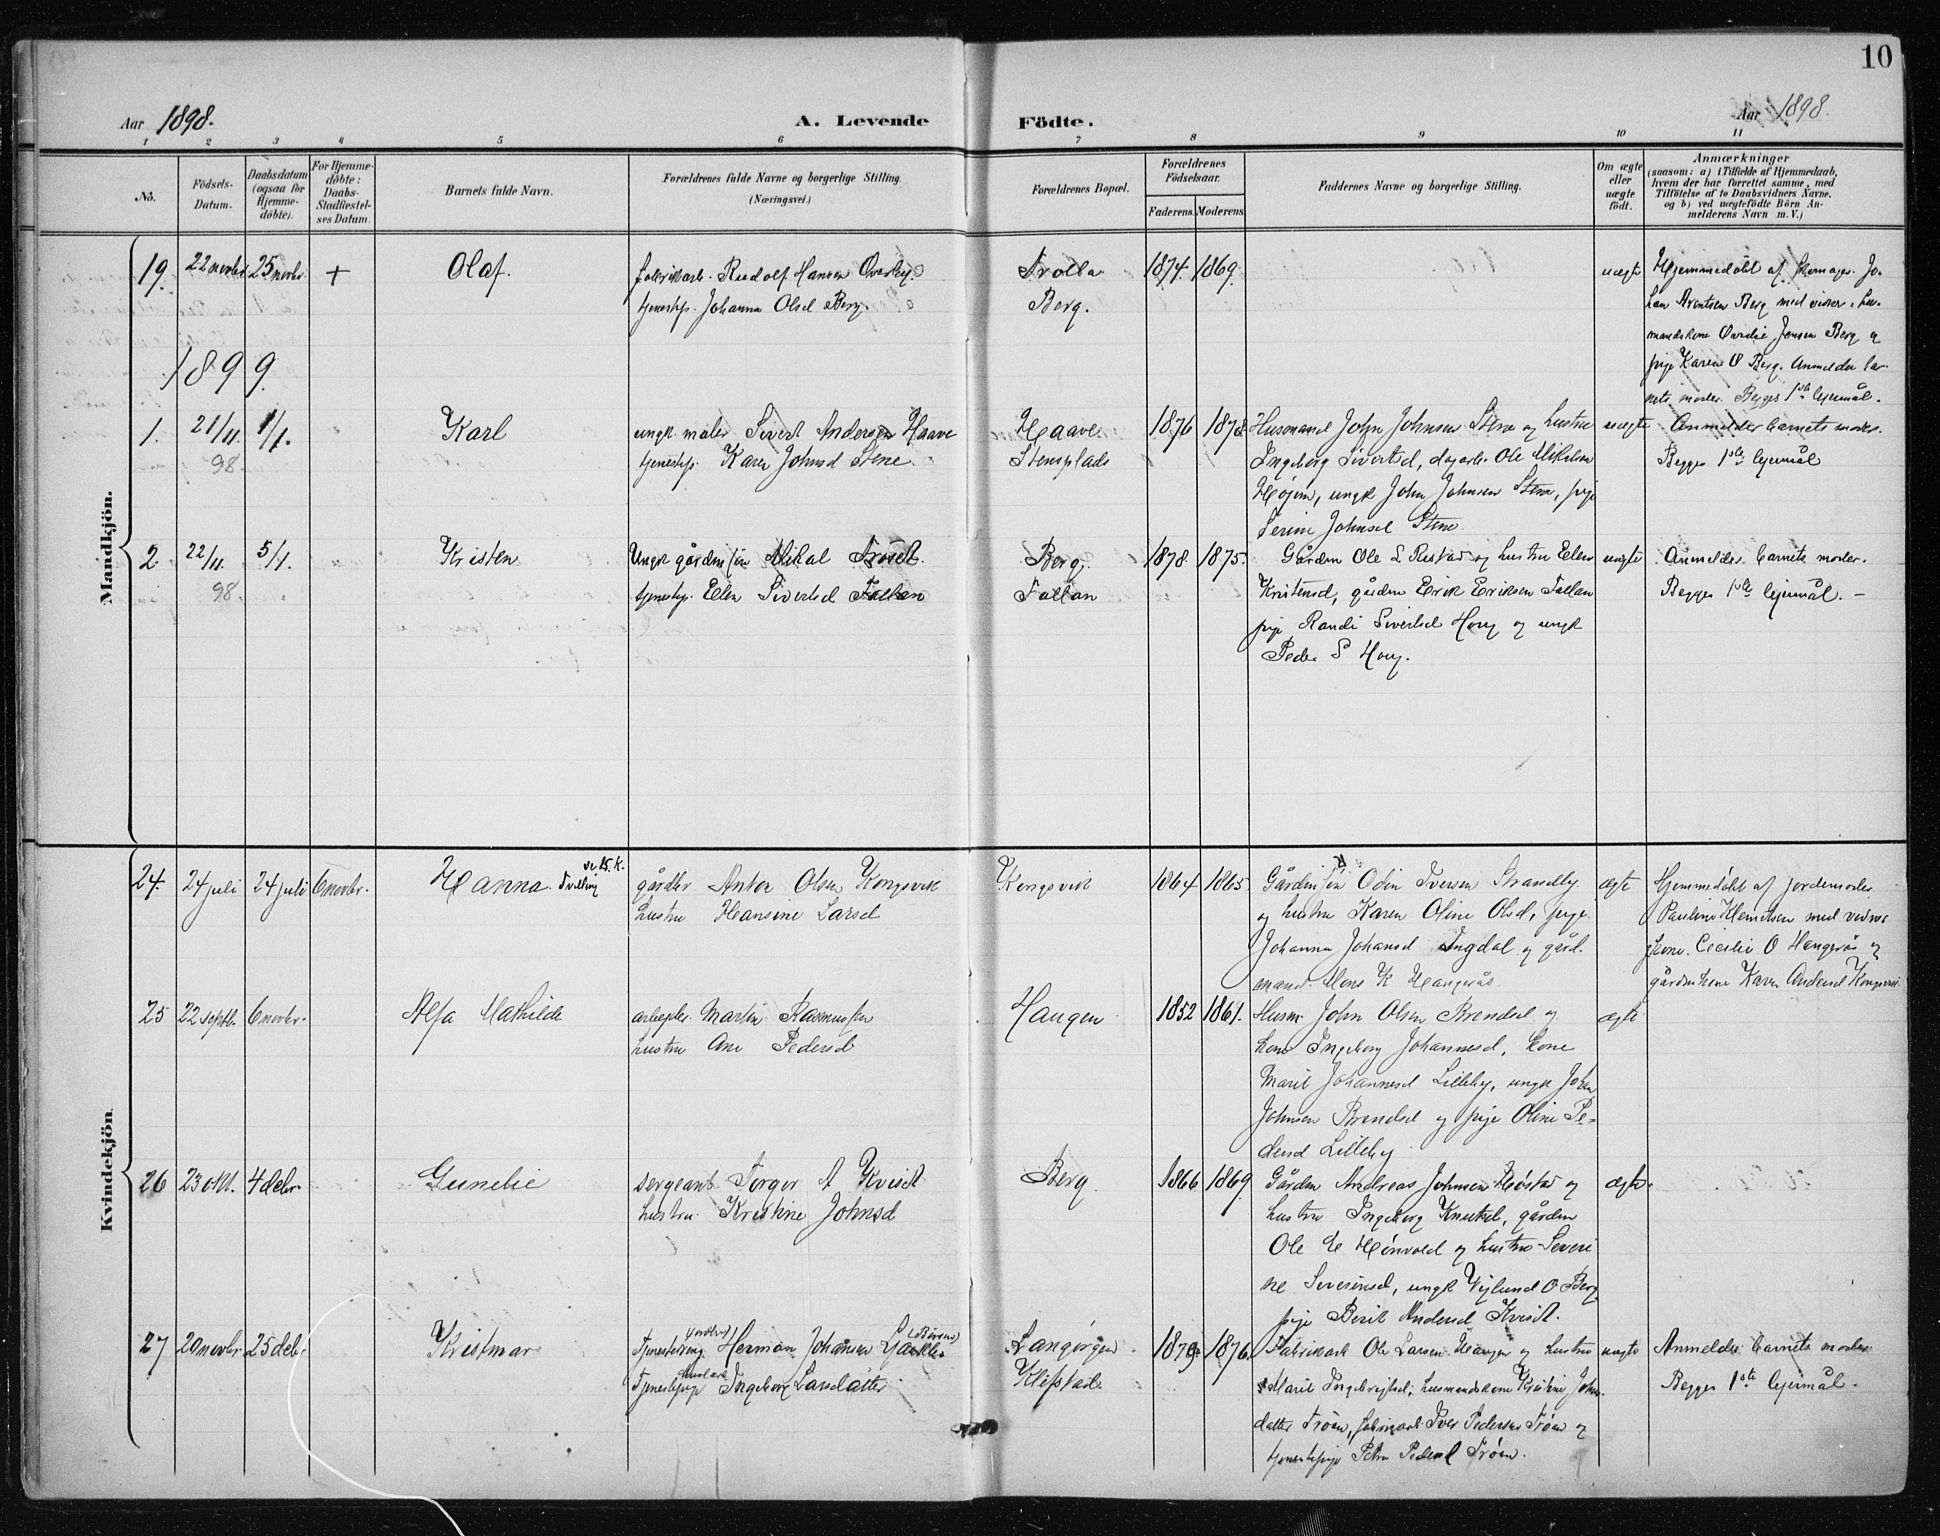 10
Aar 1898.
A. Levende
Födte.
Aar 1898.
1 2 3 4 5 6 7 8 9 10 11
No.
Födsels-
Datum.
Daabsdatum
(ogsaa for
Hjemme-
döbte).
For Hjemme-
döbte:
Daabs-
Stadfæstel-
ses Datum.
Barnets fulde Navn.
Forældrenes fulde Navne og borgerlige Stilling.
(Næringsvei.)
Forældrenes Bopæl.
Forældrenes
Födselsaar.
Faderens. Moderens.
Faddernes Navne og borgerlige Stilling.
Om ægte
eller
uægte
födt.
Anmærkninger
(saasom: a) i Tilfælde af Hjemmedaab,
hvem der har forrettet samme, med
Tilföielse af to Daabsvidners Navne.
og b) ved uægtefödte Börn An-
melderens Navn m. V.)
Mandkjön.
19. 22 novbr 25 novbr. + Olaf.
fabrikarb. Rudolf Hansen Overby
tjenestep. Johanna Olsd Berg.
Trolla
Berg.
1874. 1869.
uægte
Hjemmedøbt af Skomager Jo-
han Arentsen Berg med vidner: hus-
mandskone Jensen Berg og
pige Karen O Berg. Anmelder bar-
nets moder. Begges 1ste lejermål.
1899.
1. 21/11 98. 1/1. Karl
ungk maler Sivert Andersen Haave
tjenestep. Karen Johnsd Stene.
Haave
Stensplads
1876 1878
Husmand John Johnsen Stene og hustru
Ingeborg Sivertsd, dagarb. Ole Mikelsen
Højem, ungk John Johnsen Stene, pige
Serine Johnsd Stene.
uægte
Anmelder barnets moder.
Begges 1ste lejermål
2. 22/11 98. 5/1. Kristen
Ungk gårdm søn Mikal
tjenestep. Elen Sivertsd Fallan
Berg.
Fallan
1878. 1875.
Gårdm Ole L Rustad og hustru Elen
Kristensd, gårdm Erik Eriksen Fallan
pige Randi Sivertsd Houg og ungk
Peder S Houg.
uægte
Anmelder barnets moder.
Begges 1ste lejermål. -
Kvindekjön.
24. 24 juli 24 juli 6 novbr. Hanna. Tvilling
gårdbr Anton Olsen Kongsvik
hustru Hansine Larsd
Kongsvik
1864 1865
Gårdm søn Odin Iversen Strandby
og hustru Karen Oline Olsd, pige
Johanna Johansd Ingdal og gård-
mand Mons K Haugerås.
ægte
Hjemmedøbt af jordemoder
Pauline Klemetsen med vidner
kone Cecilie O Haugerås og
gårdm kone Karen Andersd Kongsvik
25 22 septbr 6 novbr. Alfa Mathilde
arbejder Martin Rasmussen
hustru Ane Pedersd
Haugen
1852 1861.
Husm John Olsen Brendsel og
kone Ingeborg Johannesd, kone
Marit Johannesd Lilleby, ungk Johan
Johnsen Brendsel og pige Oline Pe-
dersd Lilleby.
ægte
26 23 okt. 4 debr. Gunelie
sergeant Torger A Kvidt
hustru Kristine Johnsd
Berg
1866 1869
Gårdm Andreas Johnsen Høstad og
hustru Ingeborg Knutsd, gårdm
Ole E Hønvold og hustru Severi
ne Severinsd, ungk O Berg
pige Berit Andersd Kvidt.
ægte.
27 20 novbr 25 debr Kristmar
Tjenestedreng Herman Johansen (Børsen)
Tjenestepige Ingeborg Larsdatter
Langørgen
Klefstad
1879. 1876.
Fabrikarb Ole Larsen Haugen og hustru
Marit Ingebrigtsd, husmandskone Kristine Johns-
datter Trøen, fabrikarb Iver Pedersen Trøen og
tjenestepige Petra Pedersd Trøen.
uægte
Anmelder barnets moder
Begges 1ste lejermål.